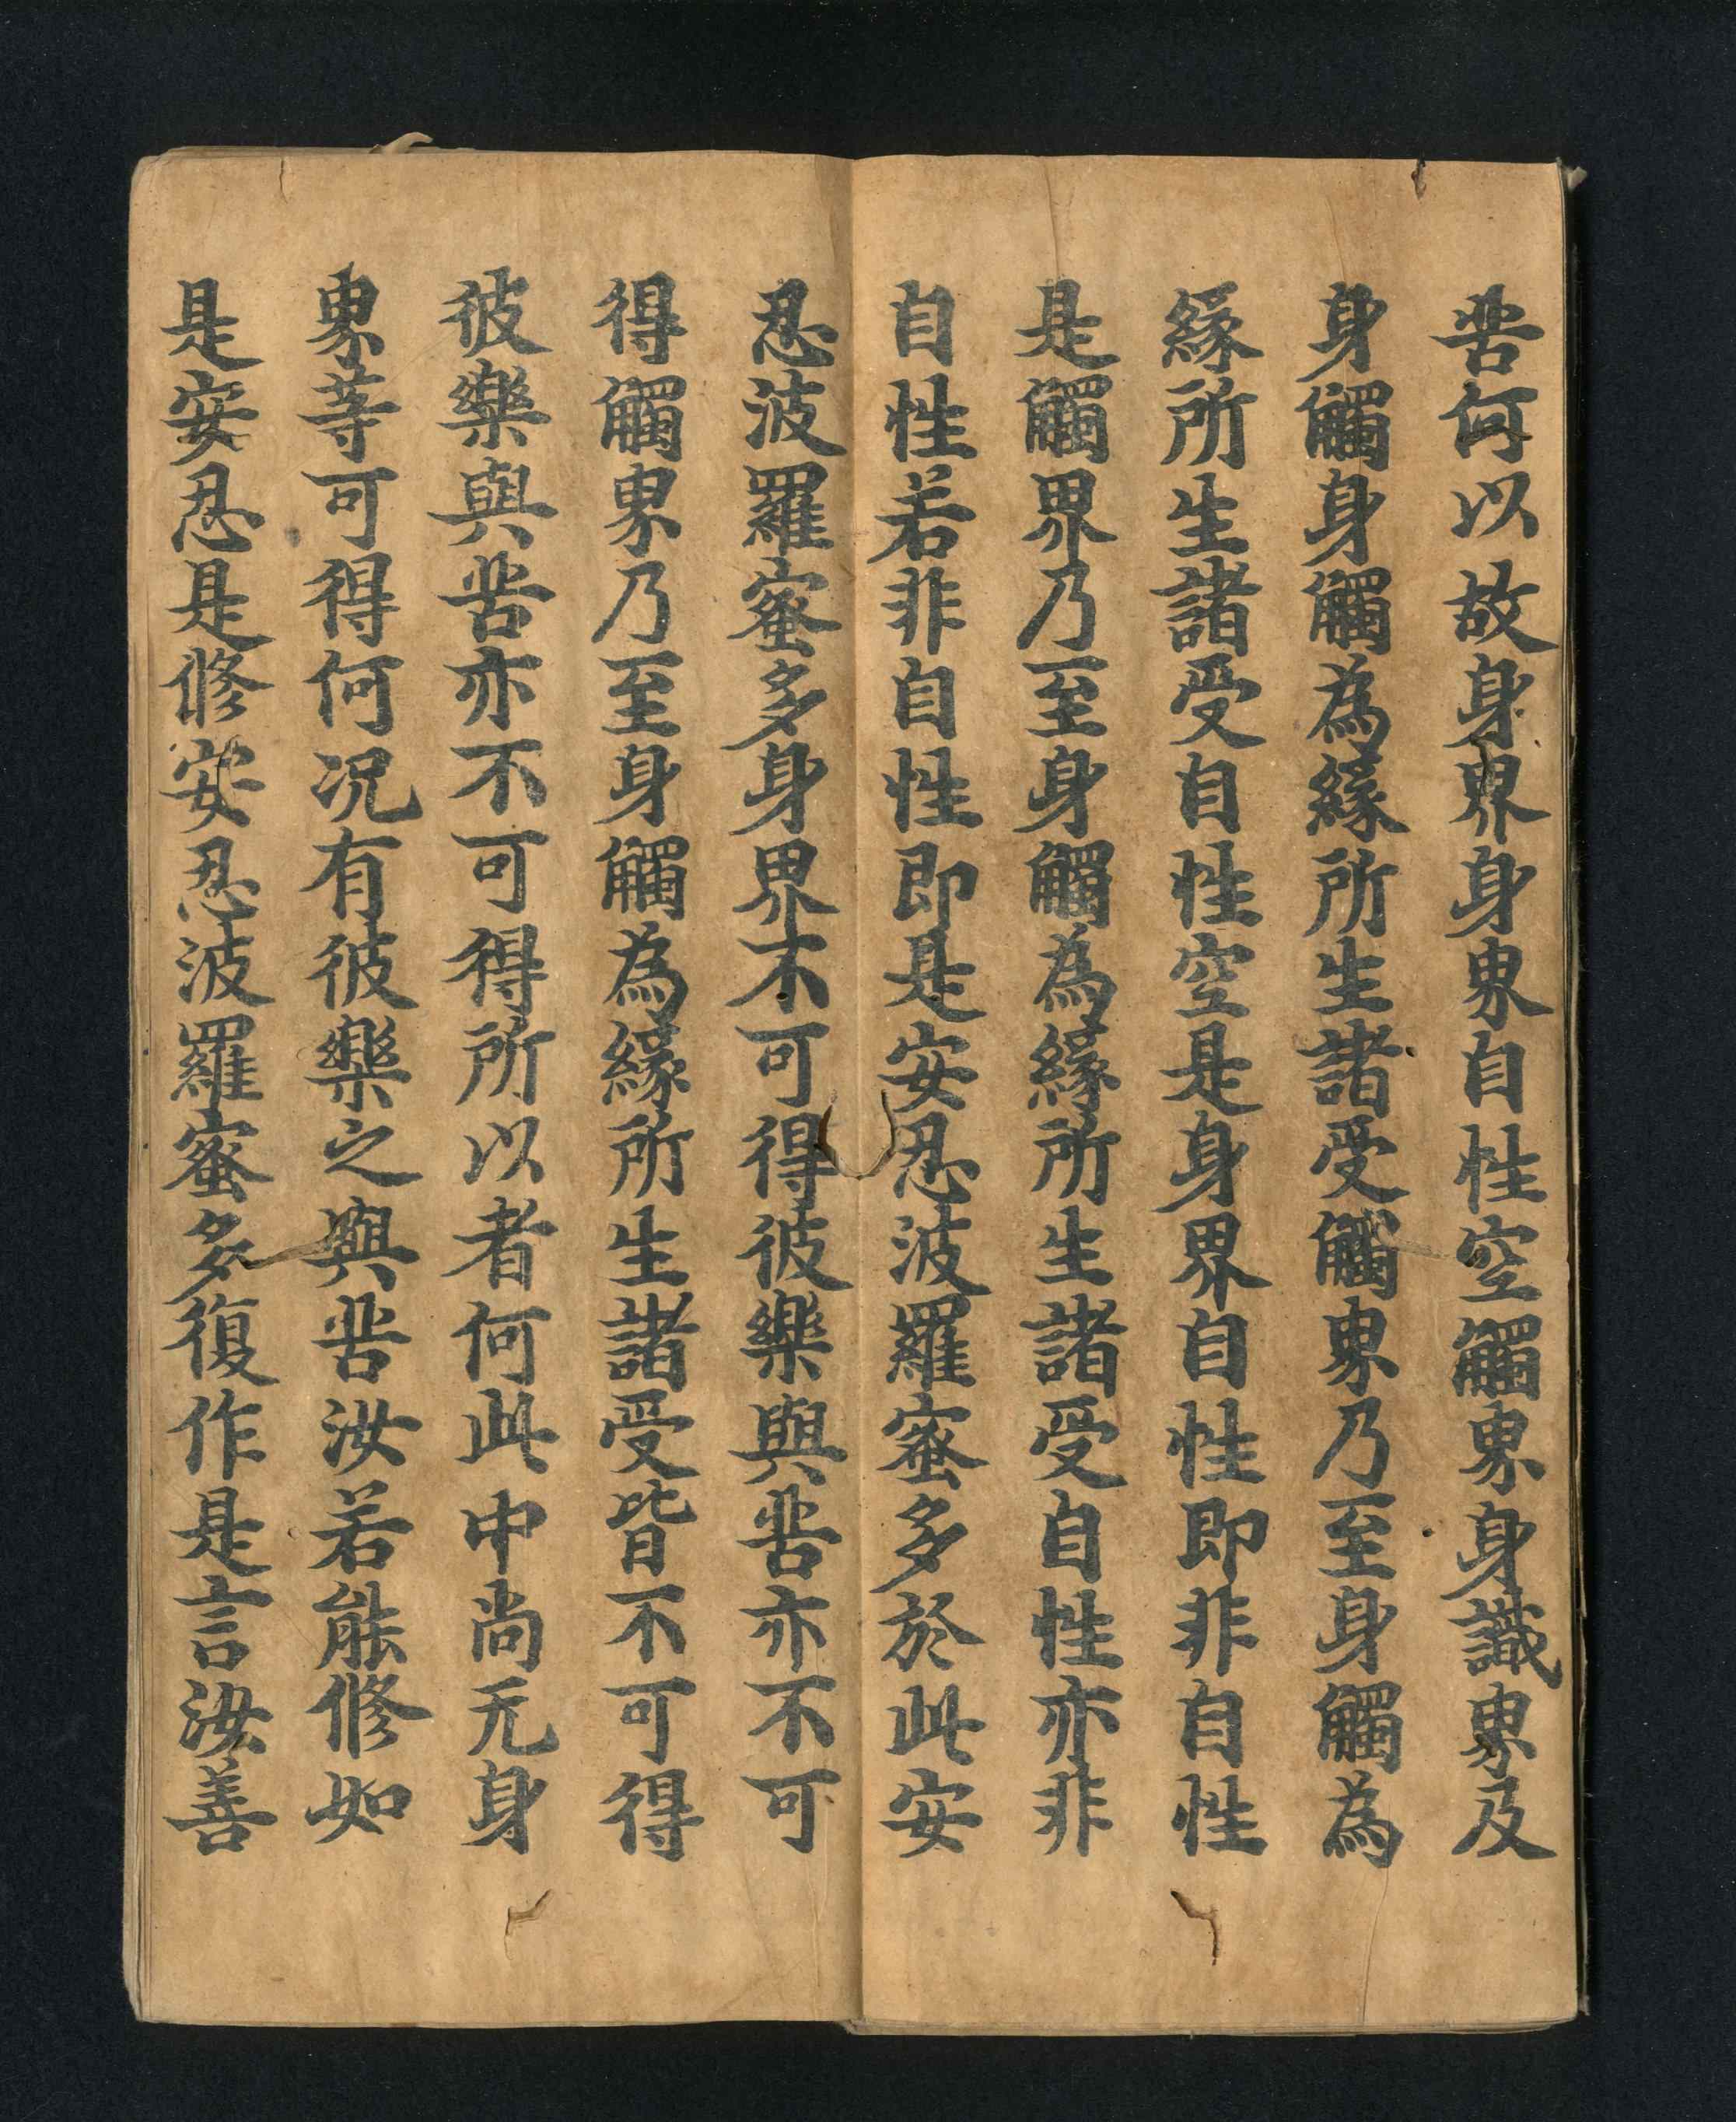 苦何以故身界身界自性空觸界身識界及
身觸身觸為緣所生諸受觸界乃至身觸為
緣所生諸受自性空是身界自性即非自性
是觸界乃至身觸為緣所生諸受自性亦非
自性若非自性即是安忍波羅蜜多於此安
忍波羅蜜多身界不可得彼樂與苦亦不可
得觸界乃至身觸為緣所生諸受皆不可得
彼樂與苦亦不可得所以者何此中尚无身
界等可得何況有彼樂之與苦汝若能修如
是安忍是修安忍波羅蜜多復作是言汝善